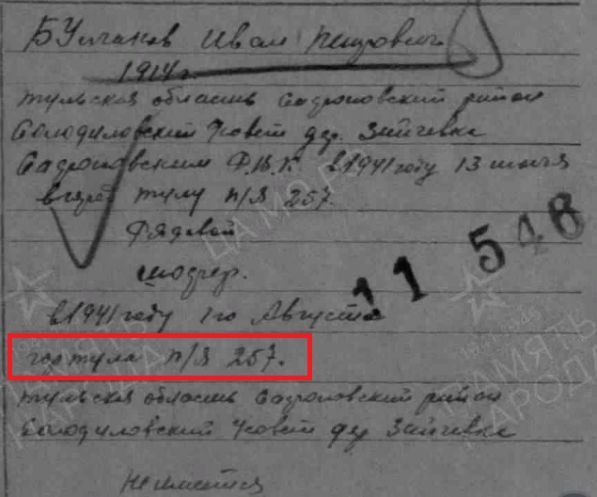 Булгаков Иван Петрович
1914г.
тульская область Сафоновский район
Солодиловский с/совет дер. Зайчевка
Сафоновским Р.В.К. в 1941 году 13 июля
в город тулу п/я 257.
Рядовой
шофер.
в 1941 году 1го Августа
11 546
гор тула п/я 257.
тульская область район
Солодиловский с/совет дер Зайчевка
Не имеется
ПАМЯТЬ НАРОДА